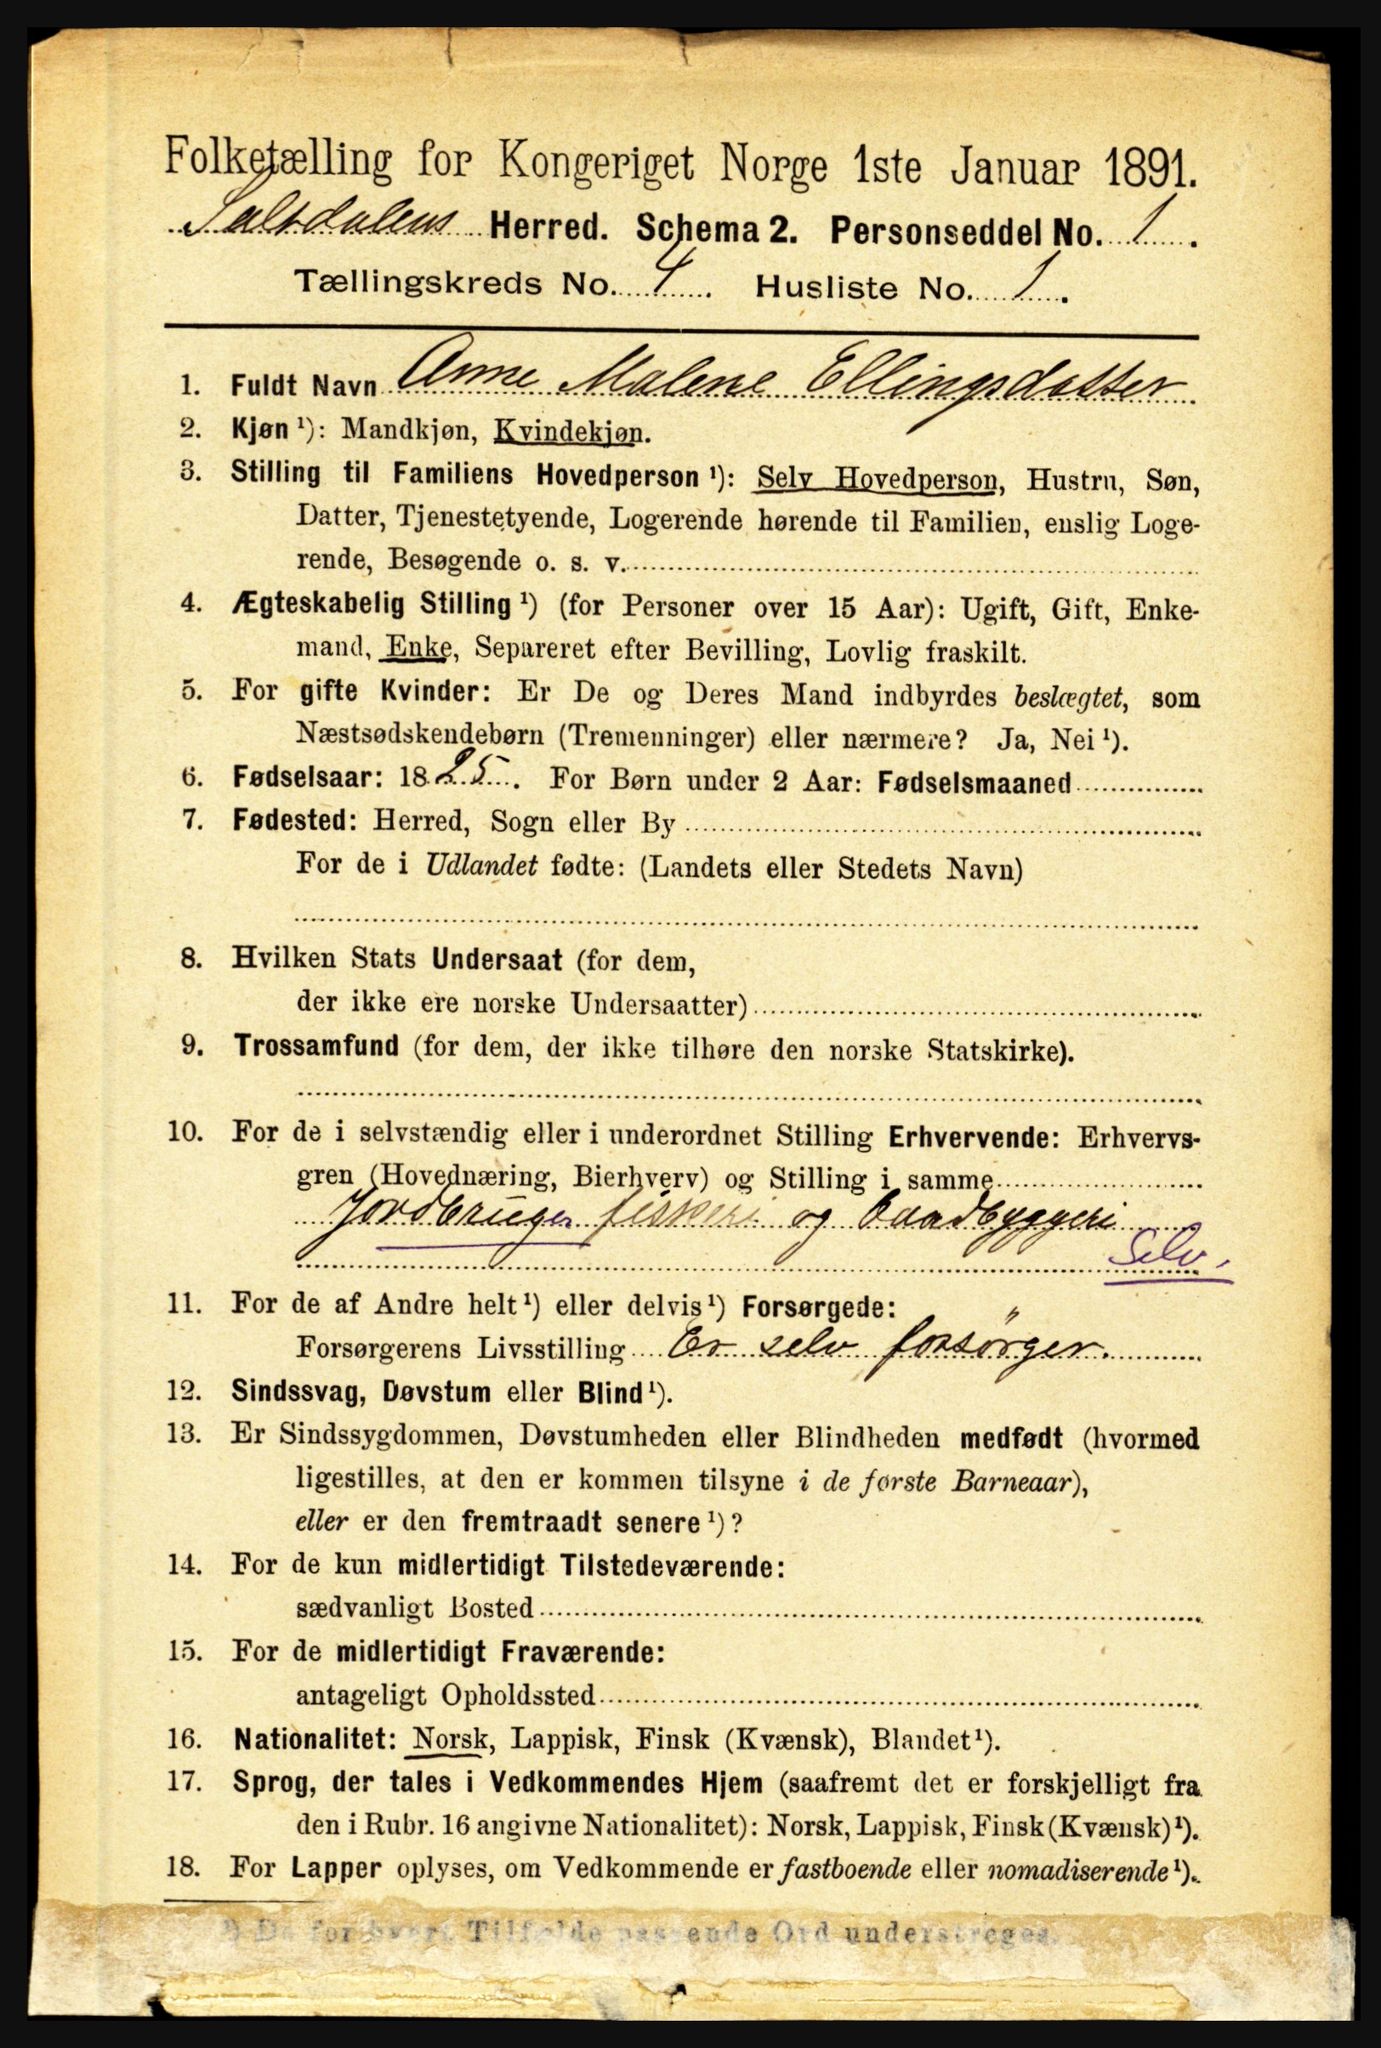 Folketælling for Kongeriget Norge 1ste Januar 1891.
Saltdalens Herred. Schema 2. Personseddel No. 1.
Tællingskreds No. 4. Husliste No. 1.
1. Fuldt Navn Anne Malene Ellingsdatter
2. Kjøn¹): Mandkjøn, Kvindekjøn.
3. Stilling til Familiens Hovedperson¹): Selv Hovedperson, Hustru, Søn,
Datter, Tjenestetyende, Logerende hørende til Familien, enslig Loge-
rende, Besøgende o. s. v.
4. Ægteskabelig Stilling¹) (for Personer over 15 Aar): Ugift, Gift, Enke-
mand, Enke, Separeret efter Bevilling, Lovlig fraskilt.
5. For gifte Kvinder: Er De og Deres Mand indbyrdes beslægtet, som
Næstsødskendebørn (Tremenninger) eller nærmere? Ja, Nei¹).
6. Fødselsaar: 1825. For Børn under 2 Aar: Fødselsmaaned
7. Fødested: Herred, Sogn eller By
For de i Udlandet fødte: (Landets eller Stedets Navn)
8. Hvilken Stats Undersaat (for dem,
der ikke ere norske Undersaatter)
9. Trossamfund (for dem, der ikke tilhøre den norske Statskirke).
10. For de i selvstændig eller i underordnet Stilling Erhvervende: Erhvervs-
gren (Hovednæring, Bierhverv) og Stilling i samme
Jordbruger fiskeri og Baadbyggeri
Selv.
11. For de af Andre helt¹) eller delvis¹) Forsørgede: "
Forsørgerens Livsstilling Er selv forsørger.
12. Sindssvag, Døvstum eller Blind¹).
13. Er Sindssygdommen, Døvstumheden eller Blindheden medfødt (hvormed
ligestilles, at den er kommen tilsyne i de første Barneaar),
eller er den fremtraadt senere¹)?
14. For de kun midlertidigt Tilstedeværende:
sædvanligt Bosted
15. For de midlertidigt Fraværende:
antageligt Opholdssted
16. Nationalitet: Norsk, Lappisk, Finsk (Kvænsk), Blandet¹).
17. Sprog, der tales i Vedkommendes Hjem (saafremt det er forskjelligt fra
den i Rubr. 16 angivne Nationalitet): Norsk, Lappisk, Finsk (Kvænsk)¹).
18. For Lapper oplyses, om Vedkommende er fastboende eller nomadiserende¹).
¹) De for hvert Tilfælde passende Ord understreges.